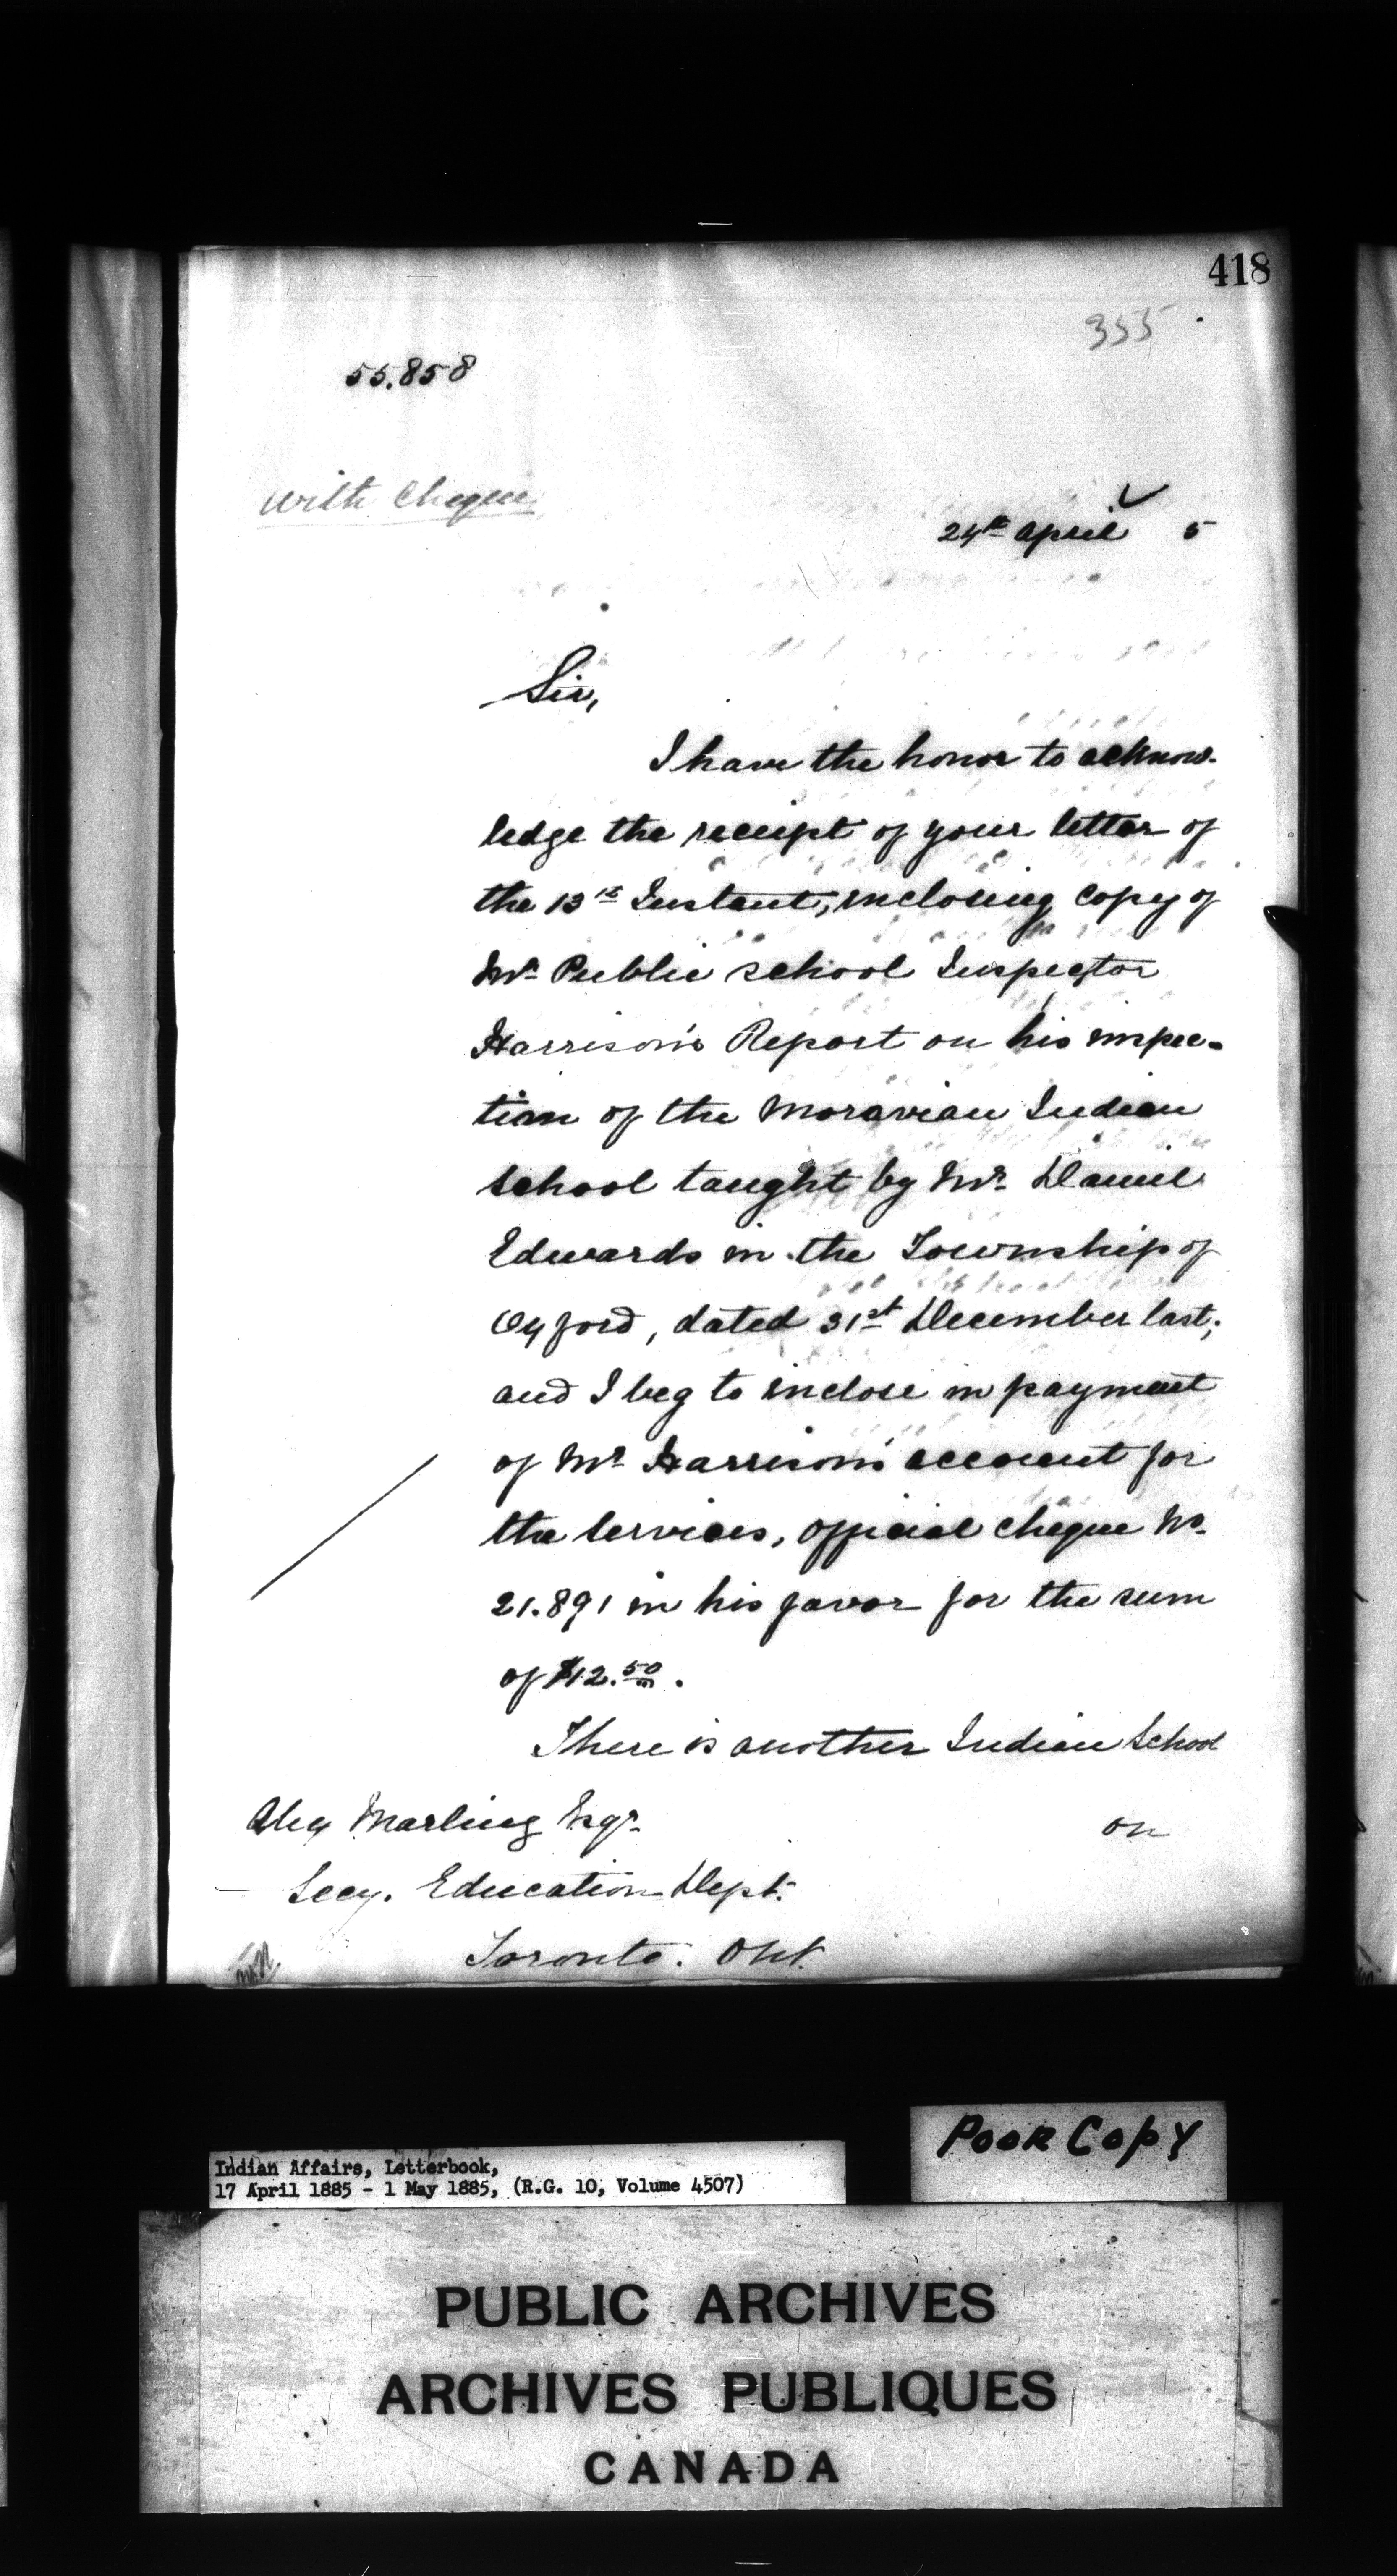 418
355
55.858
With Cheque
24th April 5
Sir,
I have the honor to acknow-
ledge the receipt of your letter of
the 13th Instant, inclosing copy of
Mr. Public school Inspector
Harrison's Report on his inspec-
tion of the Moravian Indian
School taught by Mr. Daniel
Edwards in the Township of
Oxford, dated 31st December last;
and I beg to inclose in payment
of Mr. Harrison's account for
the services, official cheque No.
21.891 in his favor for the sum
of $12.50.
There is another Indian School
Alex Marling Esqr.
on
Secy. Education Dept.
Toronto. Ont.
Poor Copy
Indian Affairs, Letterbook,
17 April 1885 - 1 May 1885, (R.G. 10, Volume 4507)
PUBLIC ARCHIVES
ARCHIVES PUBLIQUES
CANADA